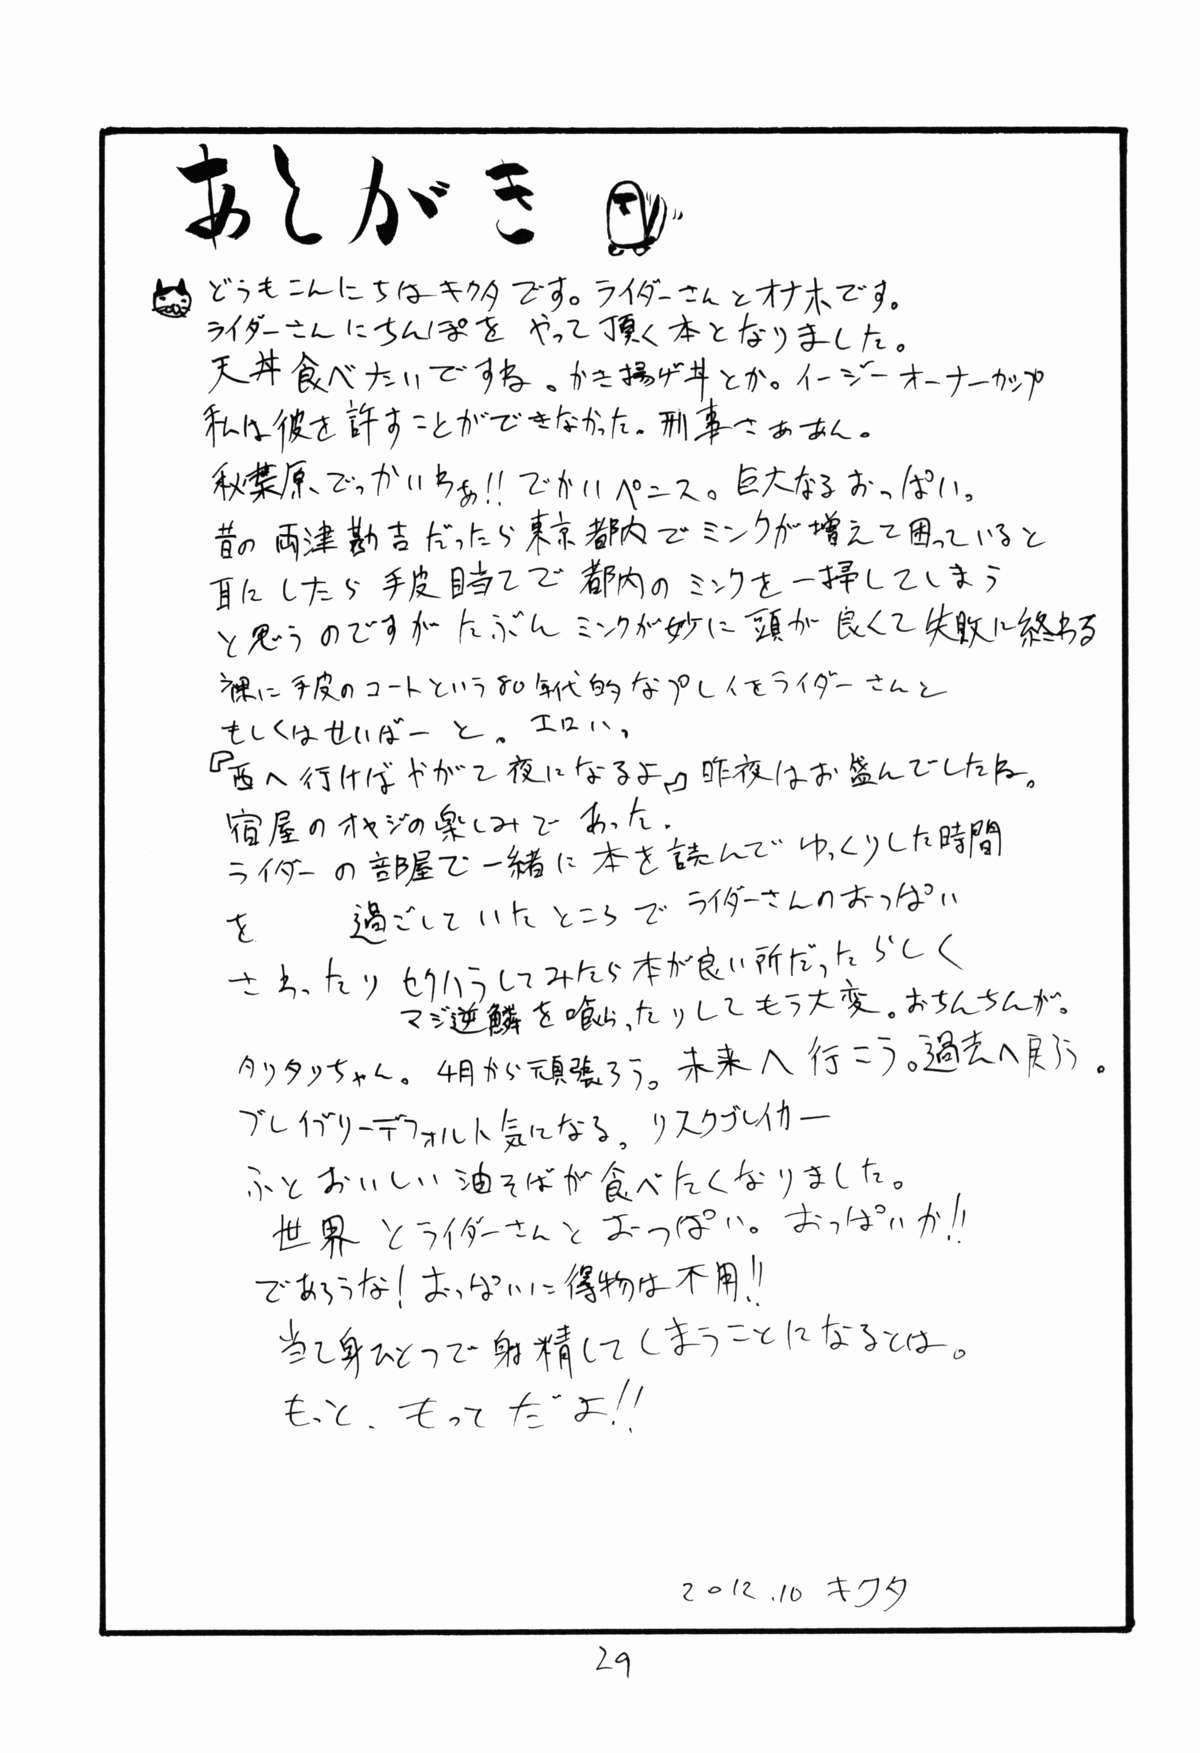 あとがき
どうもこんにちはキクタです。ライダーさんとオナホです。
ライダーさんにちんぽを やって頂く本となりました。
天丼食べたいですね。かき揚げ丼とか。イージーオーナーカップ
私は彼を許すことができなかった。刑事さぁぁん。
秋葉原、でっかいわぁ!!でかいペニス。巨大なるおっぱい。
昔の両津勘吉だったら東京都内でミンクが増えて困っていると
耳にしたら手皮目当てで都内のミンクを一掃してしまう
と思うのですがたぶんミンクが妙に頭が良くて失敗に終わる
裸に手皮のコートという80年代的なプレイをライダーさんと
もしくはせいばーと。エロい。
『西へ行けばやがて夜になるよ』昨夜はお盛んでしたね。
宿屋のオヤジの楽しみであった。
ライダーの部屋で一緒に本を読んでゆっくりした時間
を 過ごしていたところでライダーさんのおっぱい
さわったりセクハラしてみたら本が良い所だったらしく
マジ逆鱗を喰らったりしてもう大変。おちんちんが。
タリタリちゃん。4月から頑張ろう。未来へ行こう。過去へ戻ろう。
ブレイブリーデフォルト気になる。リスクブレイカー
ふとおいしい油そばが食べたくなりました。
世界とライダーさんとおっぱい。おっぱいか!!
であろうな!おっぱいに得物は不用!!
当て身ひとつで射精してしまうことになるとは。
もっと、もってだよ!!
2012.10 キクタ
29